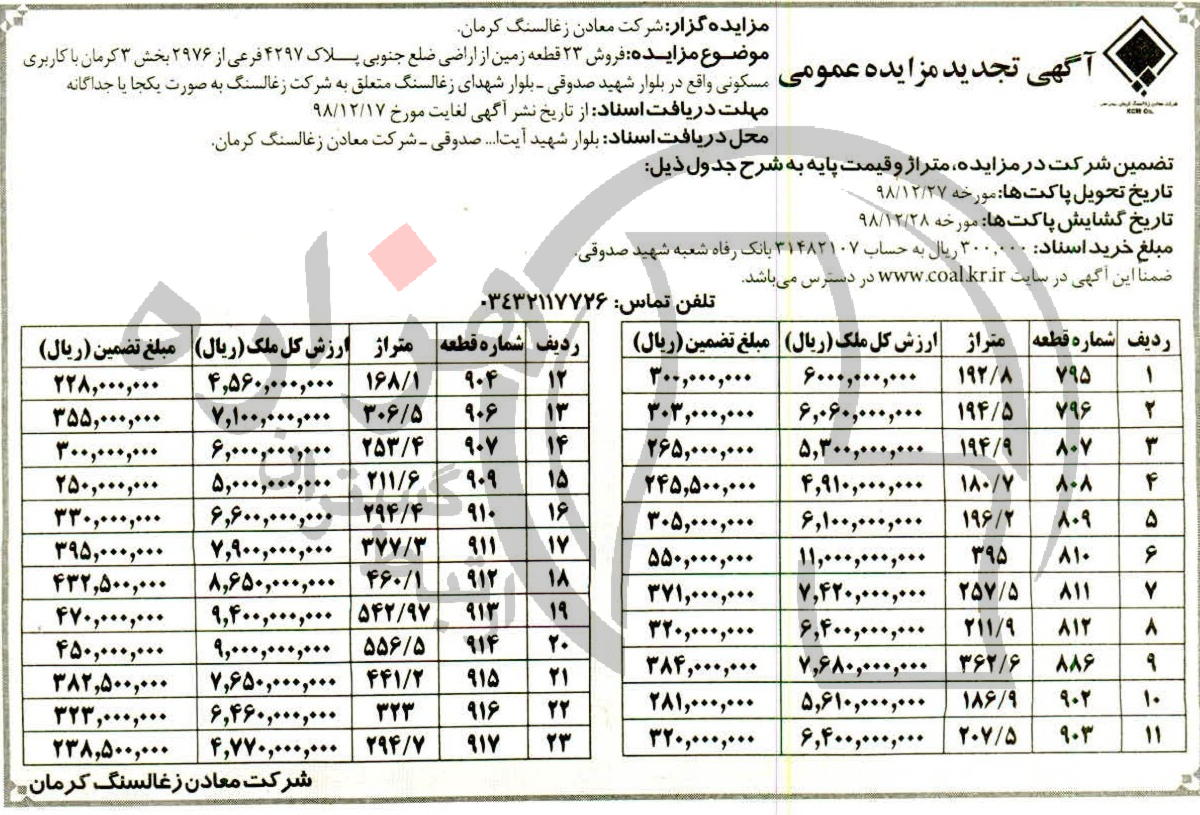 آگهی تجدید مزایده عمومی
شرکت معادن زغالسنگ کرمان
KCM Co.
مزایده گزار: شرکت معادن زغالسنگ کرمان.
موضوع مزایده: فروش ۲۳ قطعه زمین از اراضی ضلع جنوبی پلاک ۴۲۹۷ فرعی از ۲۹۷۶ بخش ۳ کرمان با کاربری
مسکونی واقع در بلوار شهید صدوقی ـ بلوار شهدای زغالسنگ متعلق به شرکت زغالسنگ به صورت یکجا یا جداگانه
مهلت دریافت اسناد: از تاریخ نشر آگهی لغایت مورخ ۹۸/۱۲/۱۷
محل دریافت اسناد: بلوار شهید آیت‌ا... صدوقی ـ شرکت معادن زغالسنگ کرمان.
تضمین شرکت در مزایده، متراژ و قیمت پایه به شرح جدول ذیل:
تاریخ تحویل پاکت‌ها: مورخه ۹۸/۱۲/۲۷
تاریخ گشایش پاکت‌ها: مورخه ۹۸/۱۲/۲۸
مبلغ خرید اسناد: ۳۰۰,۰۰۰ ریال به حساب ۳۱۴۸۲۱۰۷ بانک رفاه شعبه شهید صدوقی.
ضمناً این آگهی در سایت www.coal.kr.ir در دسترس می‌باشد.
تلفن تماس: ۰۳۴۳۲۱۱۷۷۲۶
ردیف شماره قطعه متراژ ارزش کل ملک (ریال) مبلغ تضمین (ریال)
۱ ۷۹۵ ۱۹۲/۸ ۶۰۰۰,۰۰۰,۰۰۰ ۳۰۰,۰۰۰,۰۰۰
۲ ۷۹۶ ۱۹۴/۵ ۶,۰۶۰,۰۰۰,۰۰۰ ۳۰۳,۰۰۰,۰۰۰
۳ ۸۰۷ ۱۹۴/۹ ۵,۳۰۰,۰۰۰,۰۰۰ ۲۶۵,۰۰۰,۰۰۰
۴ ۸۰۸ ۱۸۰/۷ ۴,۹۱۰,۰۰۰,۰۰۰ ۲۴۵,۵۰۰,۰۰۰
۵ ۸۰۹ ۱۹۶/۲ ۶,۱۰۰,۰۰۰,۰۰۰ ۳۰۵,۰۰۰,۰۰۰
۶ ۸۱۰ ۳۹۵ ۱۱,۰۰۰,۰۰۰,۰۰۰ ۵۵۰,۰۰۰,۰۰۰
۷ ۸۱۱ ۲۵۷/۵ ۷,۴۲۰,۰۰۰,۰۰۰ ۳۷۱,۰۰۰,۰۰۰
۸ ۸۱۲ ۲۱۱/۹ ۶,۴۰۰,۰۰۰,۰۰۰ ۳۲۰,۰۰۰,۰۰۰
۹ ۸۸۶ ۳۶۲/۶ ۷,۶۸۰,۰۰۰,۰۰۰ ۳۸۴,۰۰۰,۰۰۰
۱۰ ۹۰۲ ۱۸۶/۹ ۵,۶۱۰,۰۰۰,۰۰۰ ۲۸۱,۰۰۰,۰۰۰
۱۱ ۹۰۳ ۲۰۷/۵ ۶,۴۰۰,۰۰۰,۰۰۰ ۳۲۰,۰۰۰,۰۰۰
ردیف شماره قطعه متراژ ارزش کل ملک (ریال) مبلغ تضمین (ریال)
۱۲ ۹۰۴ ۱۶۸/۱ ۴,۵۶۰,۰۰۰,۰۰۰ ۲۲۸,۰۰۰,۰۰۰
۱۳ ۹۰۶ ۳۰۶/۵ ۷,۱۰۰,۰۰۰,۰۰۰ ۳۵۵,۰۰۰,۰۰۰
۱۴ ۹۰۷ ۲۵۳/۴ ۶,۰۰۰,۰۰۰,۰۰۰ ۳۰۰,۰۰۰,۰۰۰
۱۵ ۹۰۹ ۲۱۱/۶ ۵,۰۰۰,۰۰۰,۰۰۰ ۲۵۰,۰۰۰,۰۰۰
۱۶ ۹۱۰ ۲۹۴/۴ ۶,۶۰۰,۰۰۰,۰۰۰ ۳۳۰,۰۰۰,۰۰۰
۱۷ ۹۱۱ ۳۷۷/۳ ۷,۹۰۰,۰۰۰,۰۰۰ ۳۹۵,۰۰۰,۰۰۰
۱۸ ۹۱۲ ۴۶۰/۱ ۸,۶۵۰,۰۰۰,۰۰۰ ۴۳۲,۵۰۰,۰۰۰
۱۹ ۹۱۳ ۵۴۲/۹۷ ۹,۴۰۰,۰۰۰,۰۰۰ ۴۷۰,۰۰۰,۰۰۰
۲۰ ۹۱۴ ۵۵۶/۵ ۹,۰۰۰,۰۰۰,۰۰۰ ۴۵۰,۰۰۰,۰۰۰
۲۱ ۹۱۵ ۴۴۱/۲ ۷,۶۵۰,۰۰۰,۰۰۰ ۳۸۲,۵۰۰,۰۰۰
۲۲ ۹۱۶ ۳۲۳ ۶,۴۶۰,۰۰۰,۰۰۰ ۳۲۳,۰۰۰,۰۰۰
۲۳ ۹۱۷ ۲۹۴/۷ ۴,۷۷۰,۰۰۰,۰۰۰ ۲۳۸,۵۰۰,۰۰۰
شرکت معادن زغالسنگ کرمان